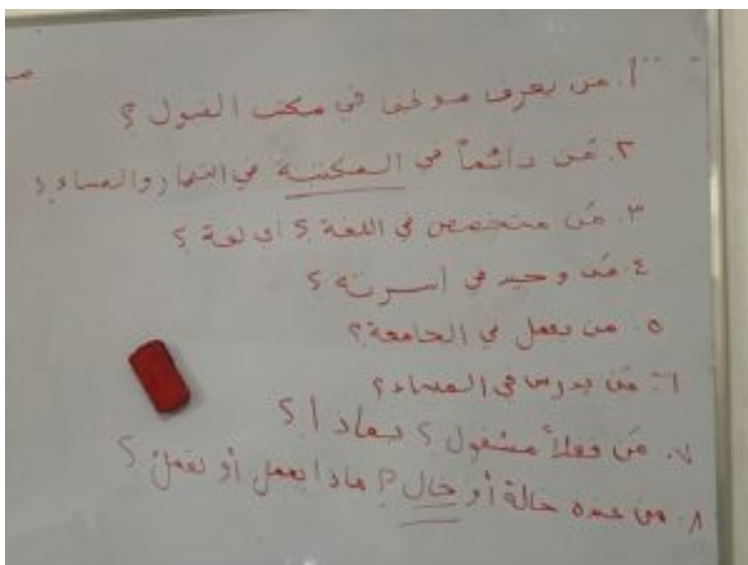 ١. من يعرف موظف في مكتب القبول؟
٢. مَن دائماً في المكتبة في النهار والمساء؟
٣. مَن متخصص في اللغة؟ أي لغة؟
٤. مَن وحيد في أسرته؟
٥. من يعمل في الجامعة؟
٦. مَن يدرس في المساء؟
٧. مَن فعلاً مشغول؟ بماذا؟
٨. من عنده خالة أو خال؟ ماذا يعمل أو تعمل؟